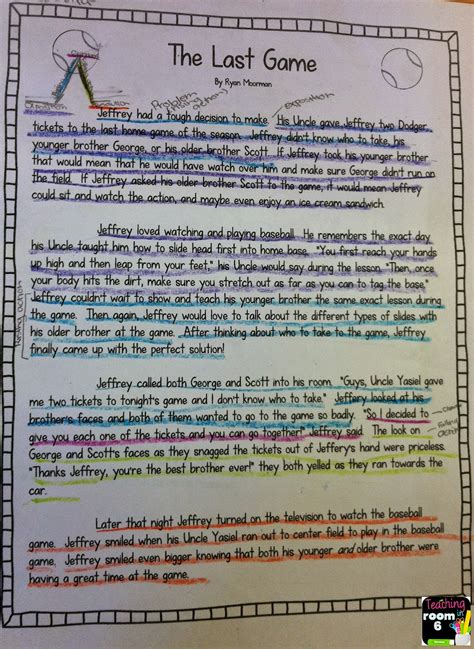 The Last Game
By Ryan Moorman
Climax
Exposition
Resolution
Problem
rising action
exposition
Jeffrey had a tough decision to make. His Uncle gave Jeffrey two Dodger
tickets to the last home game of the season. Jeffrey didn't know who to take, his
younger brother George, or his older brother Scott. If Jeffrey took his younger brother
that would mean that he would have to watch over him and make sure George didn't run on
the field. If Jeffrey asked his older brother Scott to the game, it would mean Jeffrey
could sit and watch the action, and maybe even enjoy an ice cream sandwich.
Jeffrey loved watching and playing baseball. He remembers the exact day
his Uncle taught him how to slide head first into home base. "You first reach your hands
up high and then leap from your feet," his Uncle would say during the lesson. "Then, once
your body hits the dirt, make sure you stretch out as far as you can to tag the base."
Jeffrey couldn't wait to show and teach his younger brother the same exact lesson during
the game. Then again, Jeffrey would love to talk about the different types of slides with
his older brother at the game. After thinking about who to take to the game, Jeffrey
finally came up with the perfect solution!
Rising action
Jeffrey called both George and Scott into his room. "Guys, Uncle Yasiel gave
me two tickets to tonight's game and I don't know who to take." Jeffery looked at his
brother's faces and both of them wanted to go to the game so badly. "So I decided to
give you each one of the tickets and you can go together!" Jeffrey said. The look on
George and Scott's faces as they snagged the tickets out of Jeffery's hand were priceless.
"Thanks Jeffrey, you're the best brother ever!" they both yelled as they ran towards the
car.
falling
action
Later that night Jeffrey turned on the television to watch the baseball
game. Jeffrey smiled when his Uncle Yasiel ran out to center field to play in the baseball
game. Jeffrey smiled even bigger knowing that both his younger and older brother were
having a great time at the game.
Teaching
in
room
6